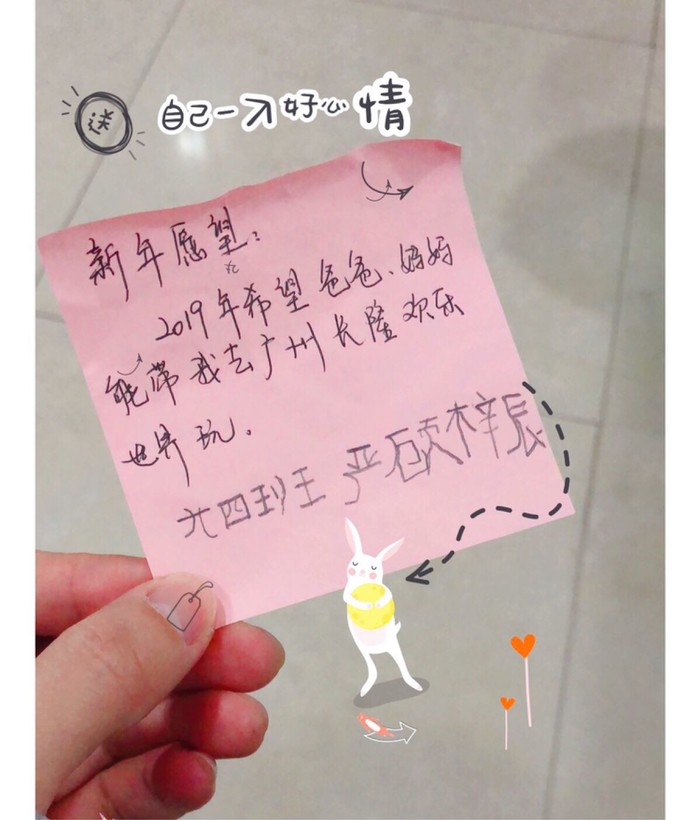 送 自己一份好心情
新年愿望：
2019年希望爸爸、妈妈
能带我去广州长隆欢乐
世界玩。
六四班王 严石卖梓辰